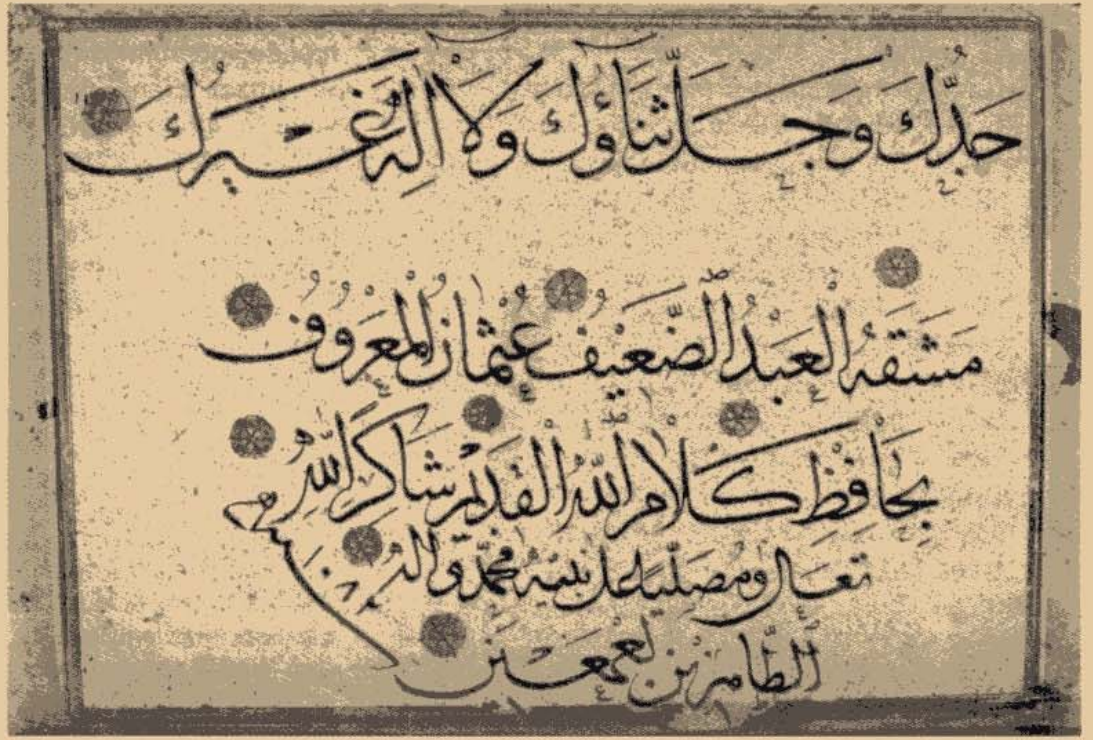 جَدُّكَ وَجَلَّ ثَنَآؤُكَ وَلَآ اِلٰهَ غَيْرُكَ
مَشَقَهُ الْعَبْدُ الضَّعِيْفُ عُثْمَانُ الْمَعْرُوفُ
بِحَافِظِ كَلَامِ اللّٰهِ الْقَدِيْمِ شَاكِرًا لِلّٰهِ
تعالى ومصليا على نبيه محمد واله
الطاهرين اجمعين
سنة ١٠٨٢